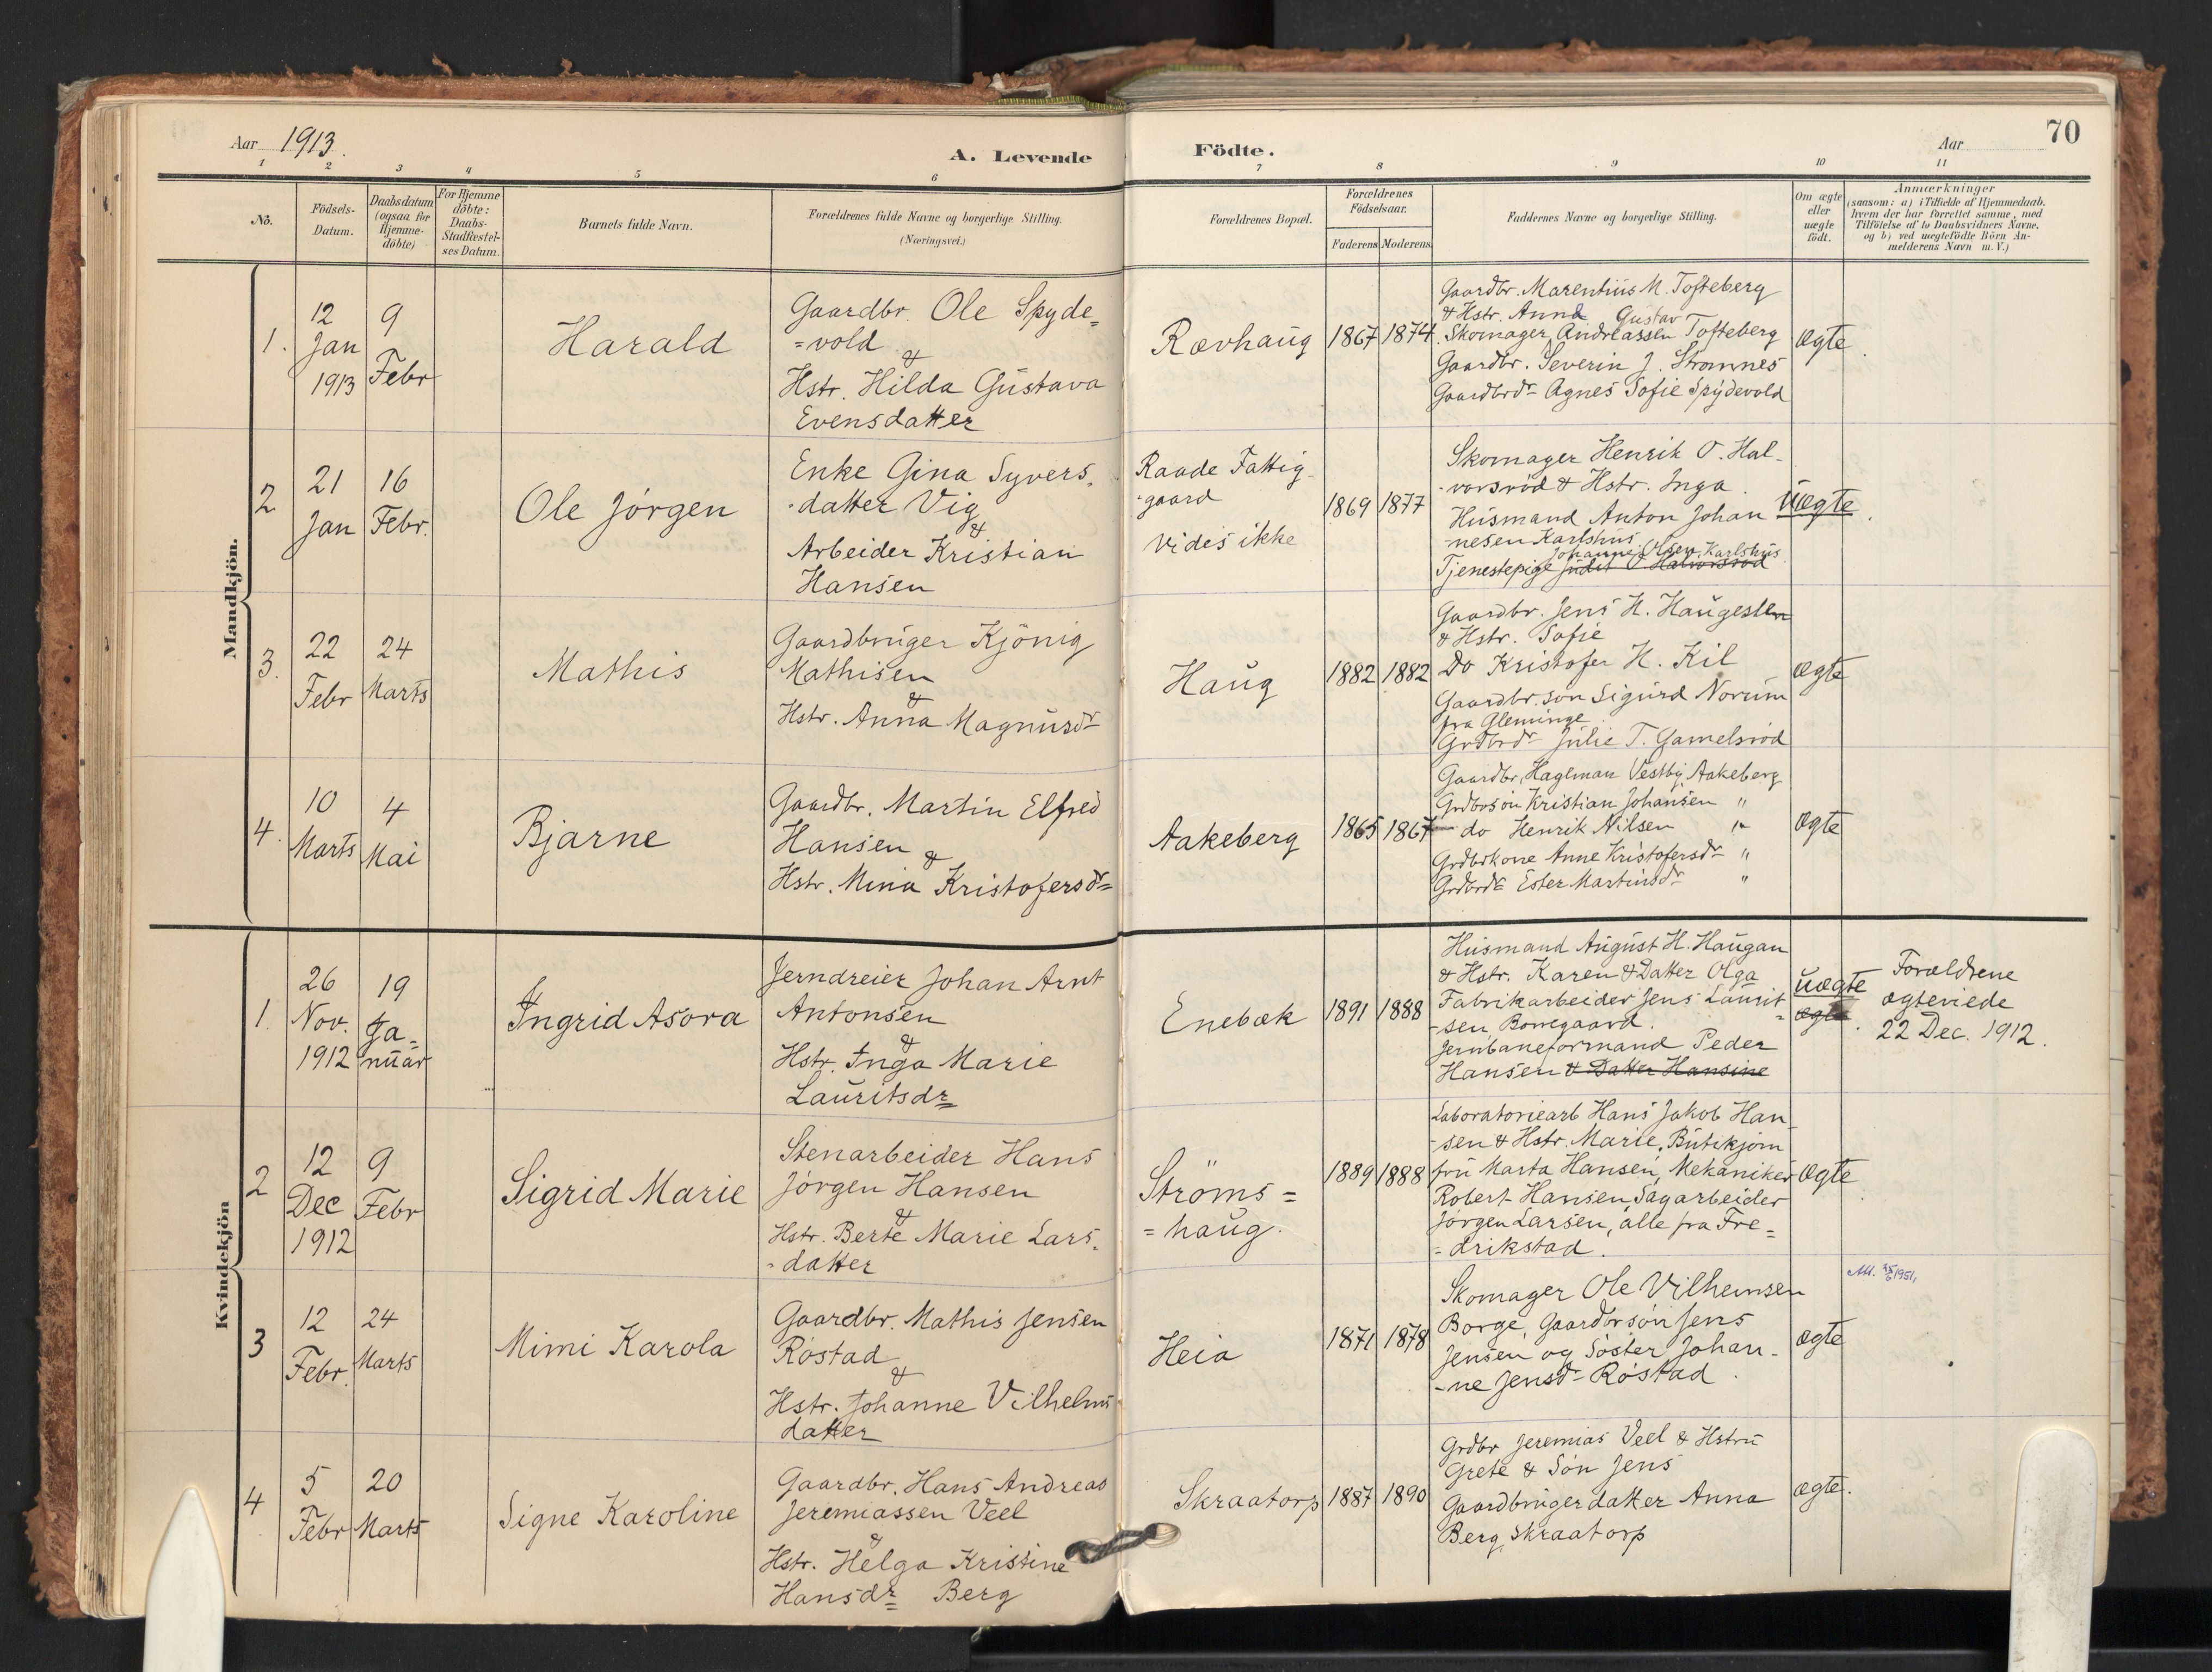 Aar 1913.
A. Levende
Födte.
Aar
70
1 2 3 4 5 6 7 8 9 10 11
No.
Födsels-
Datum.
Daabsdatum
(ogsaa for
Hjemme-
döbte)
For Hjemme
döbte:
Daabs-
Stadfæstel-
ses Datum.
Barnets fulde Navn.
Forældrenes fulde Navne og borgerlige Stilling.
(Næringsvei.)
Forældrenes Bopæl.
Forældrenes
Födselsaar.
Faderens Moderens
Faddernes Navne og borgerlige Stilling.
Om ægte
eller
uægte
födt.
Anmærkninger
(saasom: a) i Tilfælde af Hjemmedaab.
hvem der har forrettet samme, med
Tilföielse af to Daabsvidners Navne,
og b) ved uægtefödte Börn An-
melderens Navn m. V.)
Mandkjön.
1.
12
Jan
1913
9
Febr
Harald
Gaardbr. Ole Spyde=
=vold
&
Hstr. Hilda Gustava
Evensdatter
Rævhaug
1867 1874
Gaardbr. Marentius M. Tofteberg
& Hstr. Anna
Gustav
Skomager Andreassen Tofteberg
Gaardbr. Severin J. Strømnes
Gaardbrdr Agnes Sofie Spydevold
ægte.
2
21
Jan
16
Febr.
Ole Jørgen
Enke Gina Syvers-
-datter Vig
&
Arbeider Kristian
Hansen
Raade Fattig-
-gaard
Vides ikke
1869 1877
Skomager Henrik O. Hal-
-vorsrød & Hstr. Inga.
Husmand Anton Johan
nesen Karlshus.
Johanne Olsen, Karlshus
Tjenestepige Judit O. Halvorsrød
Uægte.
3.
22
Febr
24
Marts
Mathis
Gaardbruger Kjönig
Mathisen
&
Hstr. Anna Magnusdr
Haug
1882 1882
Gaardbr. Jens H. Haugesten
& Hstr. Sofie
Do Kristofer H. Kil
Gaardbr.søn Sigurd Norum
fra Gleminge.
Grdbrdr Julie T. Gamelsrød
ægte
4.
10
Marts
4
Mai
Bjarne
Gaardbr. Martin Elfred
Hansen
&
Hstr. Mina Kristofersdr
Aakeberg
1865 1867
Gaardbr. Hagemau Vestby, Aakeberg
Grdbrsøn Kristian Johansen "
do Henrik Nilsen "
Grdbrkone Anne Kristofersdr "
Grdbrdr Ester Martinsdr "
ægte
Kvindekjön
1.
26
Nov.
1912
19
Ja-
nuar
Ingrid Asora
Jerndreier Johan Arnt
Antonsen
&
Hstr. Inga Marie
Lauritsdr
Enebæk
1891 1888
Husmand August H. Haugan
& Hstr. Karen & Datter Olga
Fabrikarbeider Jens Laurit-
-sen, Borregaard.
Jernbaneformand Peder
Hansen & Datter Hansine
uægte
ægte.
Forældrene
ægteviede
22 Dec. 1912.
2
12
Dec
1912
9
Febr
Sigrid Marie
Stenarbeider Hans
Jørgen Hansen
&
Hstr. Berte Marie Lars-
-datter
Ströms=
=haug.
1889 1888
Laboratoriearb Hans Jakob Han-
-sen & Hstr. Marie, Butikjom
fru Marta Hansen, Mekaniker
Robert Hansen, Sagarbeider
Jørgen Larsen, alle fra Fre=
=drikstad.
ægte
3
12
Febr.
24
Marts
Mimi Karola
Gaardbr. Mathis Jensen
Røstad
&
Hstr. Johanne Vilhelms
datter
Heia
1871 1878
Skomager Ole Vilhemsen
Borge, Gaardbrsøn Jens
Jensen og Søster Johan-
-ne Jensdr Røstad.
ægte
1951.
4
5
Febr
20
Marts
Signe Karoline
Gaardbr. Hans Andreas
Jeremiassen Veel
&
Hstr. Helga Kristine
Hansdr Berg
Skraatorp
1887 1890
Grdbr Jeremias Veel & Hstru
Grete & Søn Jens
Gaardbrugerdatter Anna
Berg, Skraatorp
ægte.